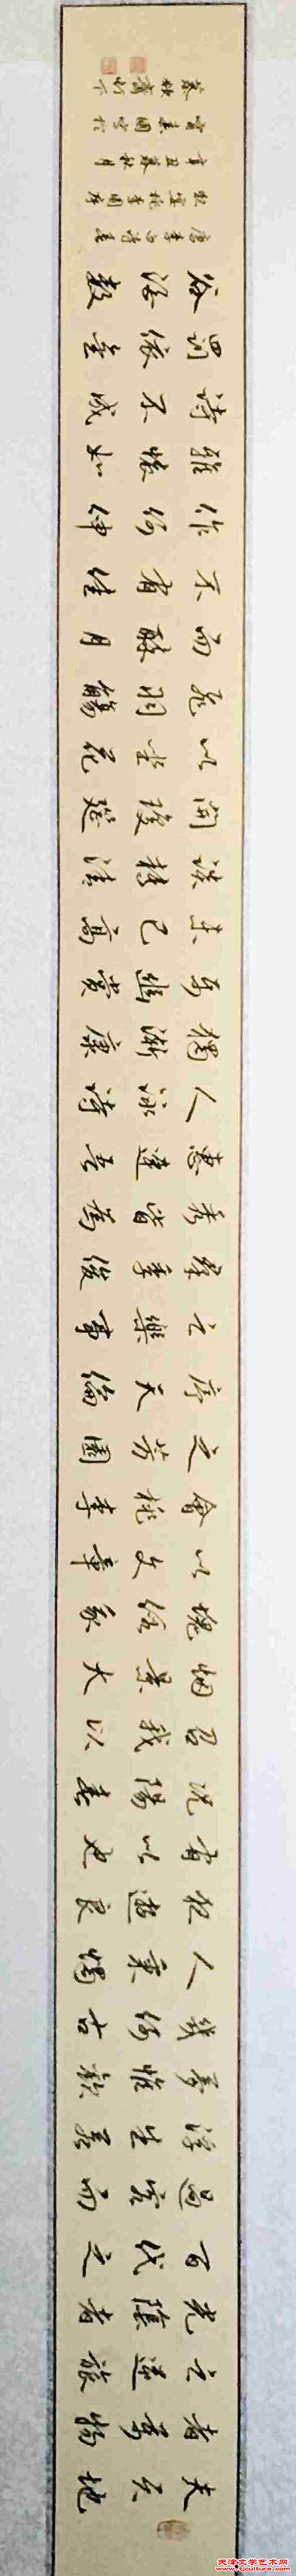 夫天地
者萬物
之逆旅
光陰者
百代之
過客而
浮生若
夢為歡
幾何古
人秉燭
夜遊良
有以也
况陽春
召我以
烟景大
塊假我
以文章
會桃李
之芳園
序天倫
之樂事
群季俊
秀皆為
惠連吾
人詠詩
獨慚康
乐幽賞
未已高
談轉清
開瓊筵
以坐花
飛羽觴
而醉月
不有佳
作何伸
雅懷如
詩不成
罰依金
谷酒數
唐李白詩春
夜宴桃李園序
辛丑暮秋月
國書於
齋灯下
天津文学艺术网
www.tjculture.com